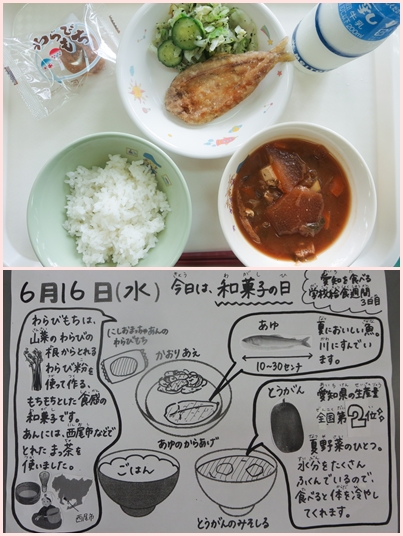 わらび
もち
6月16日(水)
今日は、和菓子の日
きょう
わがし
ひ
愛知を食べる
学校給食週間
3日目
わらびもちは、
山菜のわらびの
根からとれる
わらび粉を
使って作る、
もちもちとした食感の
和菓子です。
あんには、西尾市などで
とれたまっ茶を
使いました。
西尾市
にしおまっちゃあんの
わらびもち
かおりあえ
あゆのからあげ
ごはん
とうがんのみそしる
あゆ
10~30センチ
夏においしい魚。
川にすんでい
ます。
とうがん
愛知県の生産量
全国第2位
夏野菜のひとつ。
水分をたくさん
ふくんでいるので、
食べると体を冷やし
てくれます。